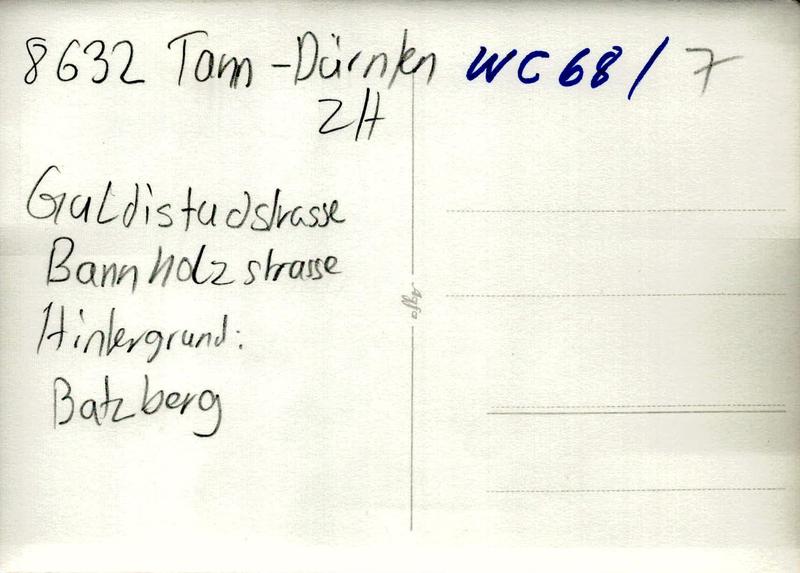 8632 Tann-Dürnten WC 68/7
ZH
Guldistudstrasse
Bannholzstrasse
Hintergrund:
Batzberg
Agfa